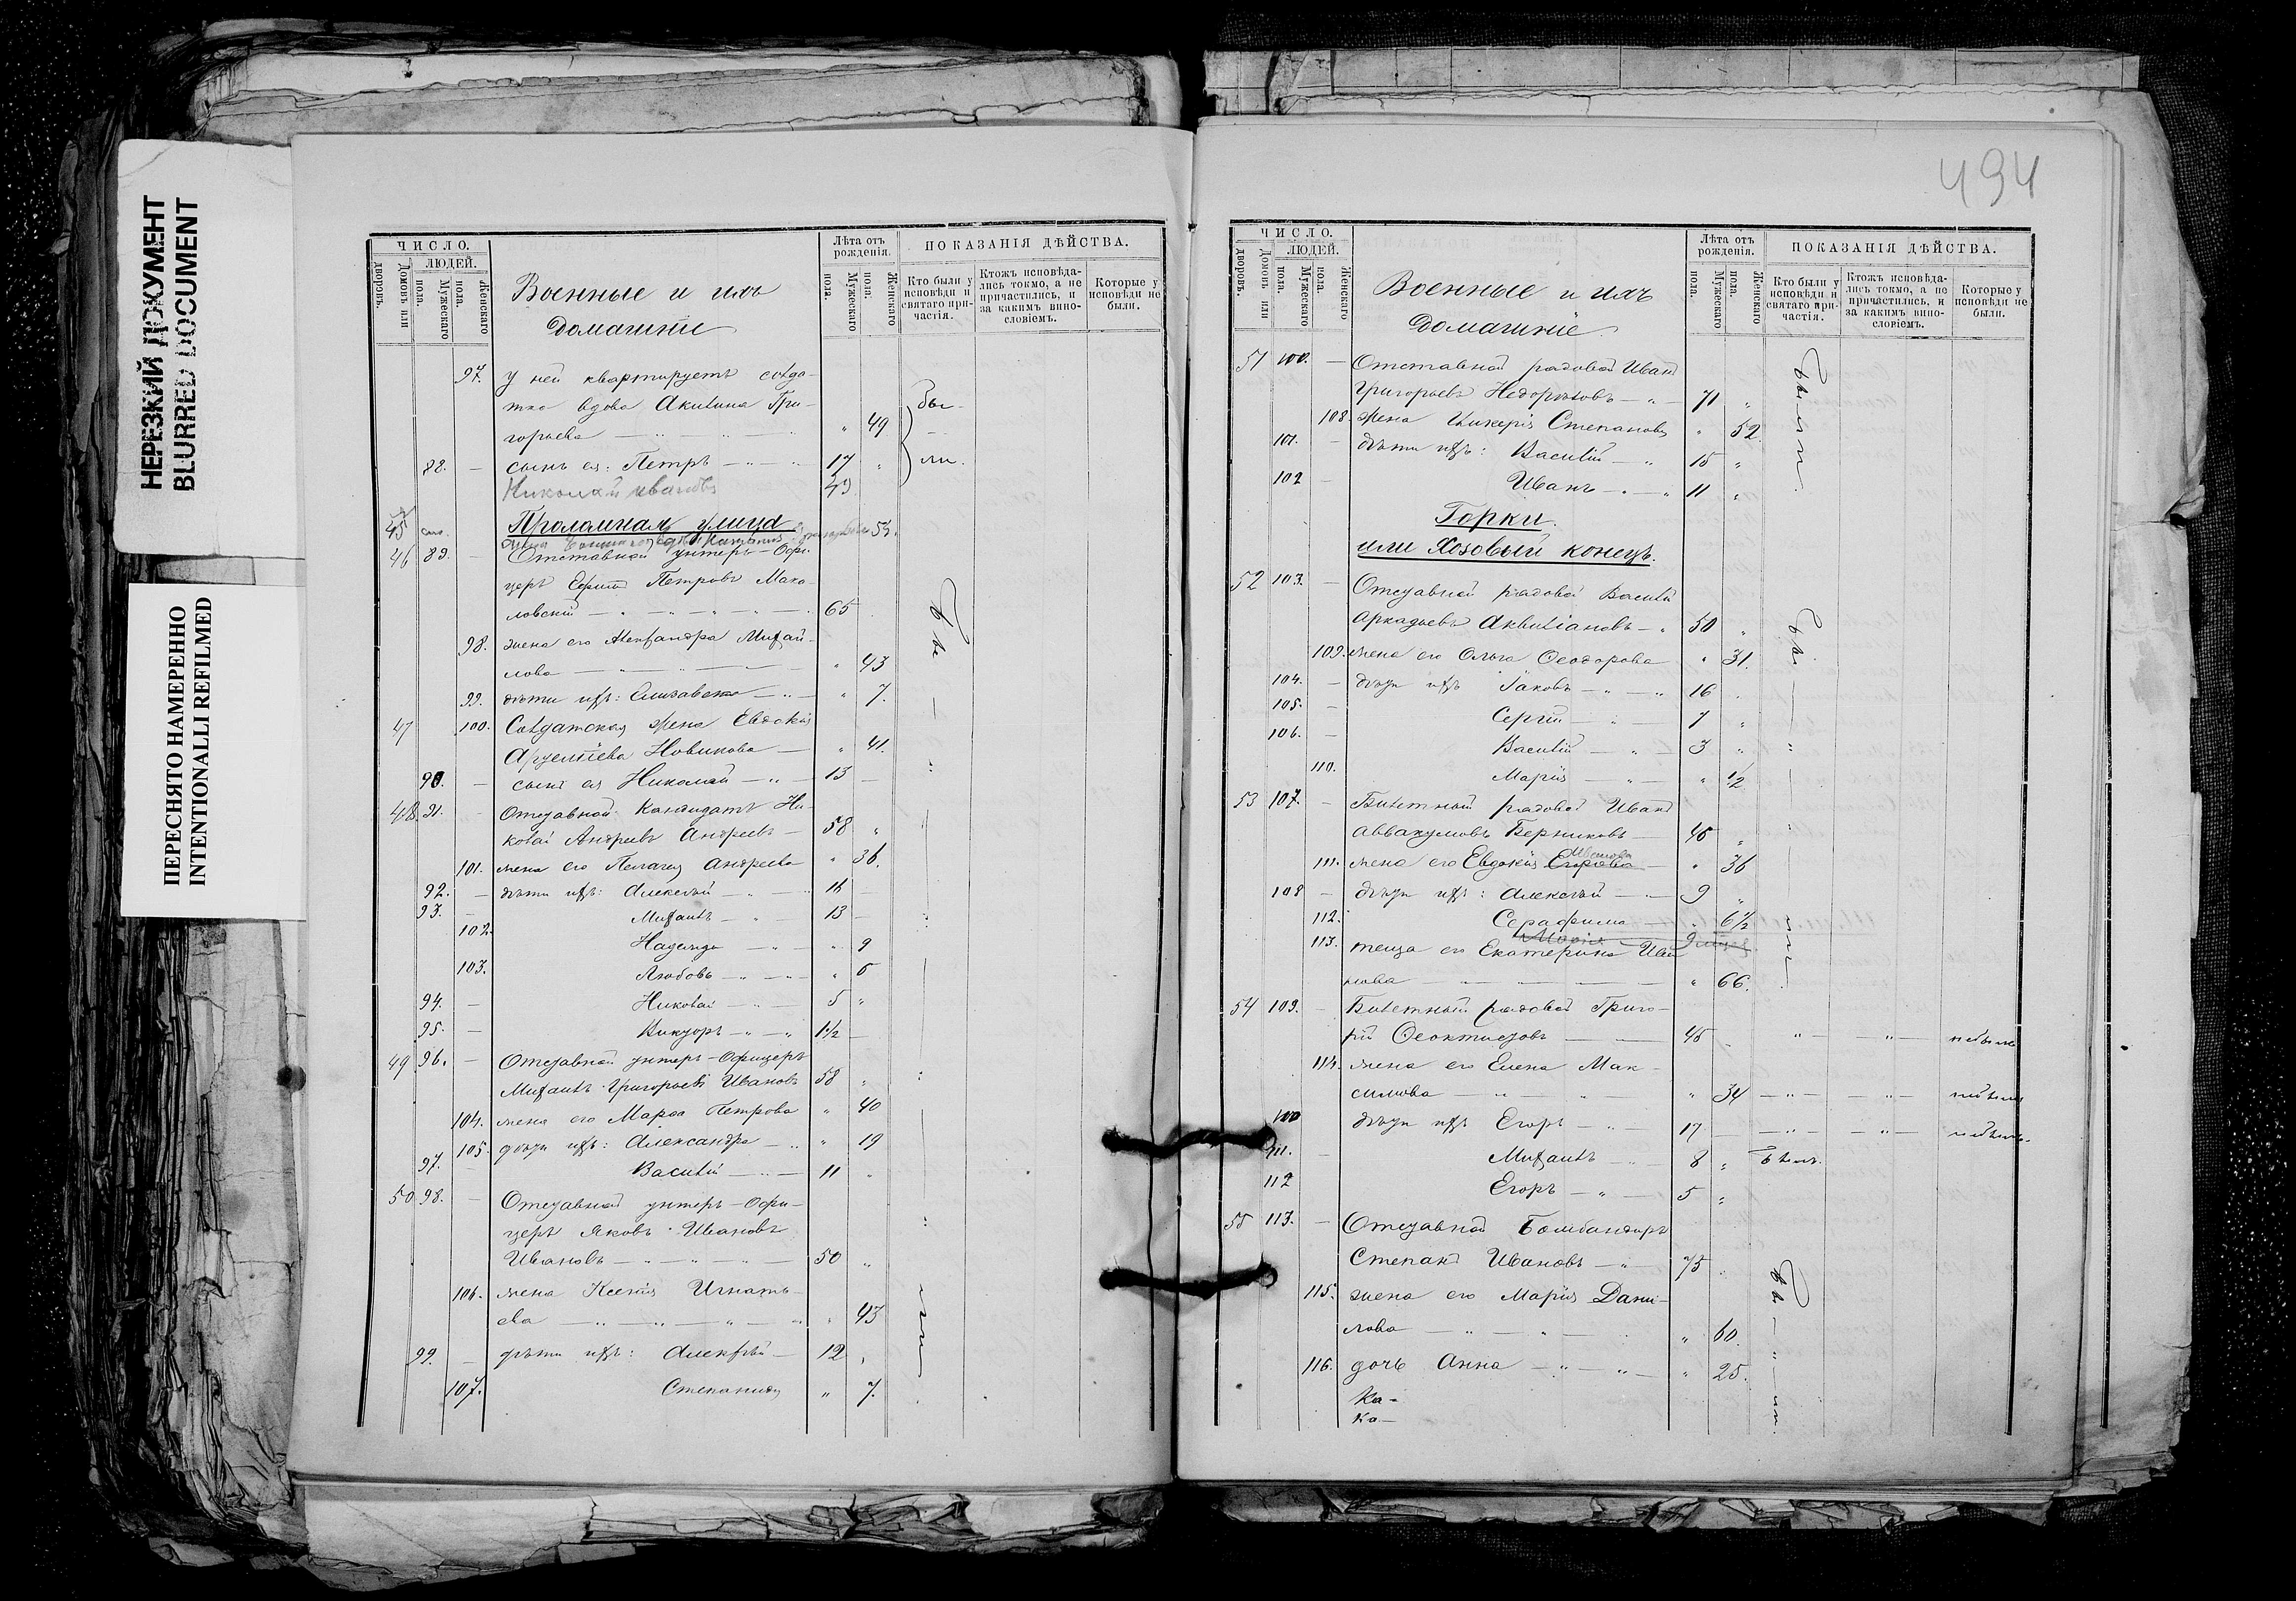 НЕРЕЗКИЙ ДОКУМЕНТ
BLURRED DOCUMENT
ПЕРЕСНЯТО НАМЕРЕННО
INTENTIONALLI REFILMED
ЧИСЛО.
ЛЮДЕЙ.
Домовъ или дворовъ.
Мужескаго пола.
Женскаго пола.
Военные и ихъ
Домашніе
Лѣта отъ рожденія.
Мужескаго пола.
Женскаго пола.
ПОКАЗАНІЯ ДѢЙСТВА.
Кто были у исповѣди и святаго причастія.
Ктожъ исповѣдались токмо, а не причастились, и за какимъ винословіемъ.
Которые у исповѣди не были.
97. У ней квартируетъ солда-
тка вдова Акилина Гри-
горьева — " — " — " 49 бы-
88. — сынъ ея: Петръ — " — " 17 " ли.
Николай Ивановъ 49
45
Проломная улица 53.
46 89. — Отставной унтеръ-Офи-
церъ Ефимъ Петровъ Мака-
ловскій — " — " — " — 65
98. жена его Александра Михай-
лова — " — " — " 43
99. дѣти ихъ: Елизавета — " — " 7.
47 100. Солдатская жена Евдокія
Новикова — " 41.
90. — сынъ ея Николай — " — 13 —
48 91. — Отставной Кандидатъ Ни-
колай Андреевъ Андреевъ — 58 "
101. жена его Пелагея Андреева " 36.
92. — дѣти ихъ: Алексѣй — " — 16 —
93. — Михаилъ — " — 13 —
102. Надежда — " — " 9
103. Любовь — " — " 6
94. — Николай — " — 5 "
95. — Викторъ — " — " 1 1/2 —
49 96. — Отставной унтеръ-Офицеръ
Михаилъ Григорьевъ Ивановъ 58 "
104. жена его Марѳа Петрова " 40
105. дѣти ихъ: Александра — " " 19
97. — Василій — " — 11 "
50 98. — Отставной унтеръ-Офи-
церъ Яковъ Ивановъ
Ивановъ — " — " — " — 50 "
106. жена Ксенія Игнать-
ева — " — " — " — " 43
99. — дѣти ихъ: Алексѣй — 12 "
107. Степанида " 7.
494
ЧИСЛО.
ЛЮДЕЙ.
Домовъ или дворовъ.
Мужескаго пола.
Женскаго пола.
Военные и ихъ
Домашніе
Лѣта отъ рожденія.
Мужескаго пола.
Женскаго пола.
ПОКАЗАНІЯ ДѢЙСТВА.
Кто были у исповѣди и святаго причастія.
Ктожъ исповѣдались токмо, а не причастились, и за какимъ винословіемъ.
Которые у исповѣди не были.
51 100. — Отставной рядовой Иванъ
Григорьевъ — " — 71 " были
108. жена Гликерія Степанова " 52.
101. — дѣти ихъ: Василій — " 15 "
102 — Иванъ — " — " 11 "
Горки
или Хозовый конецъ.
52 103. — Отставной рядовой Василій
Аркадьевъ Аквиліановъ — " 50 "
109. жена его Ольга Ѳеодорова " 31.
104. — дѣти ихъ Іаковъ — " — " 16 "
105. — Сергій — " — 7 "
106. — Василій — " — 3 "
110. Марія — " — " 1/2
53 107. — Билетный рядовой Иванъ
Аввакумовъ Берниковъ — 45 "
Иванова
111. жена его Евдокія Егорова — " 36
108 — дѣти ихъ: Алексѣй — " — 9 "
112. Серафима — " 6 1/2
Марія
113. теща его Екатерина Ива-
нова — — — " 66.
54 109. — Билетный рядовой Григо-
рій Ѳеоктистовъ — 45 — " — " — небыли
114. жена его Елена Мак-
симова — " — " — " 34 — " — — " — небыла
110 дѣти ихъ Егоръ — " — 17 — — " — — " — небылъ.
111. — Михаилъ — " — 8 " былъ.
112 Егоръ — " — 5 "
55 113. — Отставной Бомбандиръ
Степанъ Ивановъ — " 75 "
115. жена его Марія Дани-
лова — " — " — " 60.
116. дочь Анна — " — " — " 25.
Ка-
Ка-